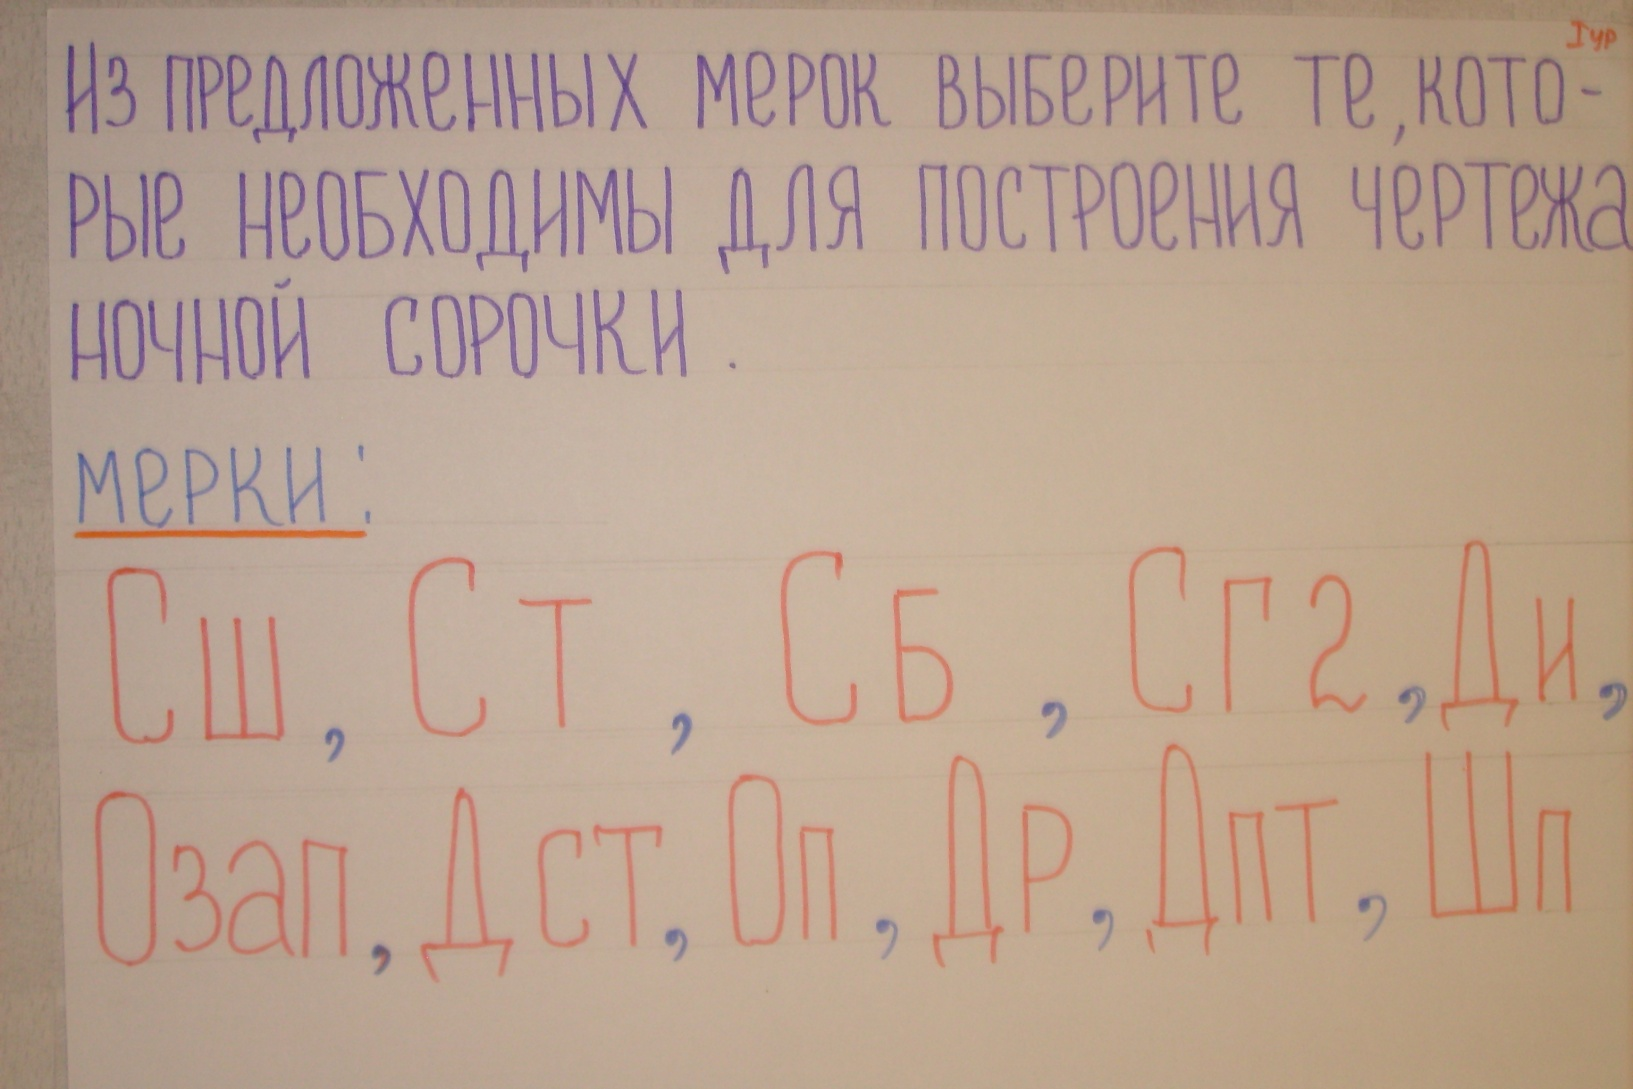 I ур
Из предложенных мерок выберите те, кото-
рые необходимы для построения чертежа
ночной сорочки.
мерки:
Сш, Ст, Сб, Сг2, Ди,
Озап, Дст, Оп, Др, Дпт, Шп